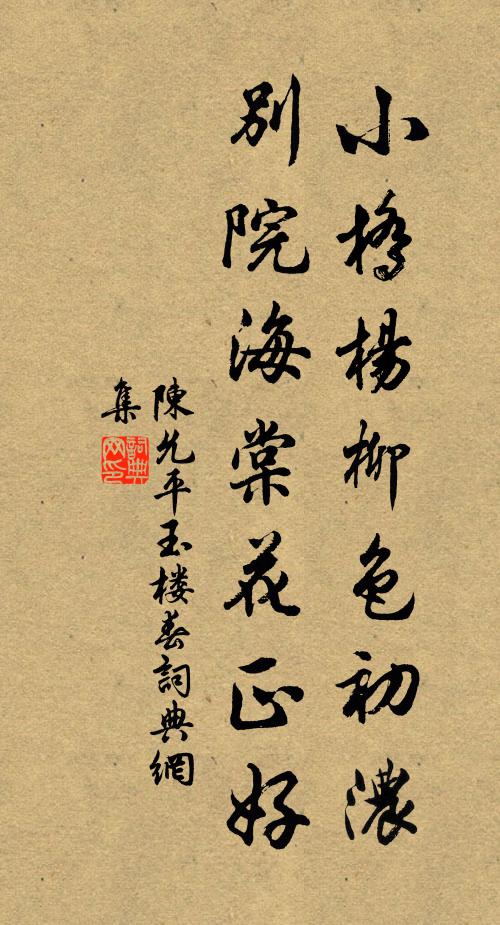 小橋楊柳色初濃
別院海棠花正好
陳允平玉楼春詞典網
集
詞典网印